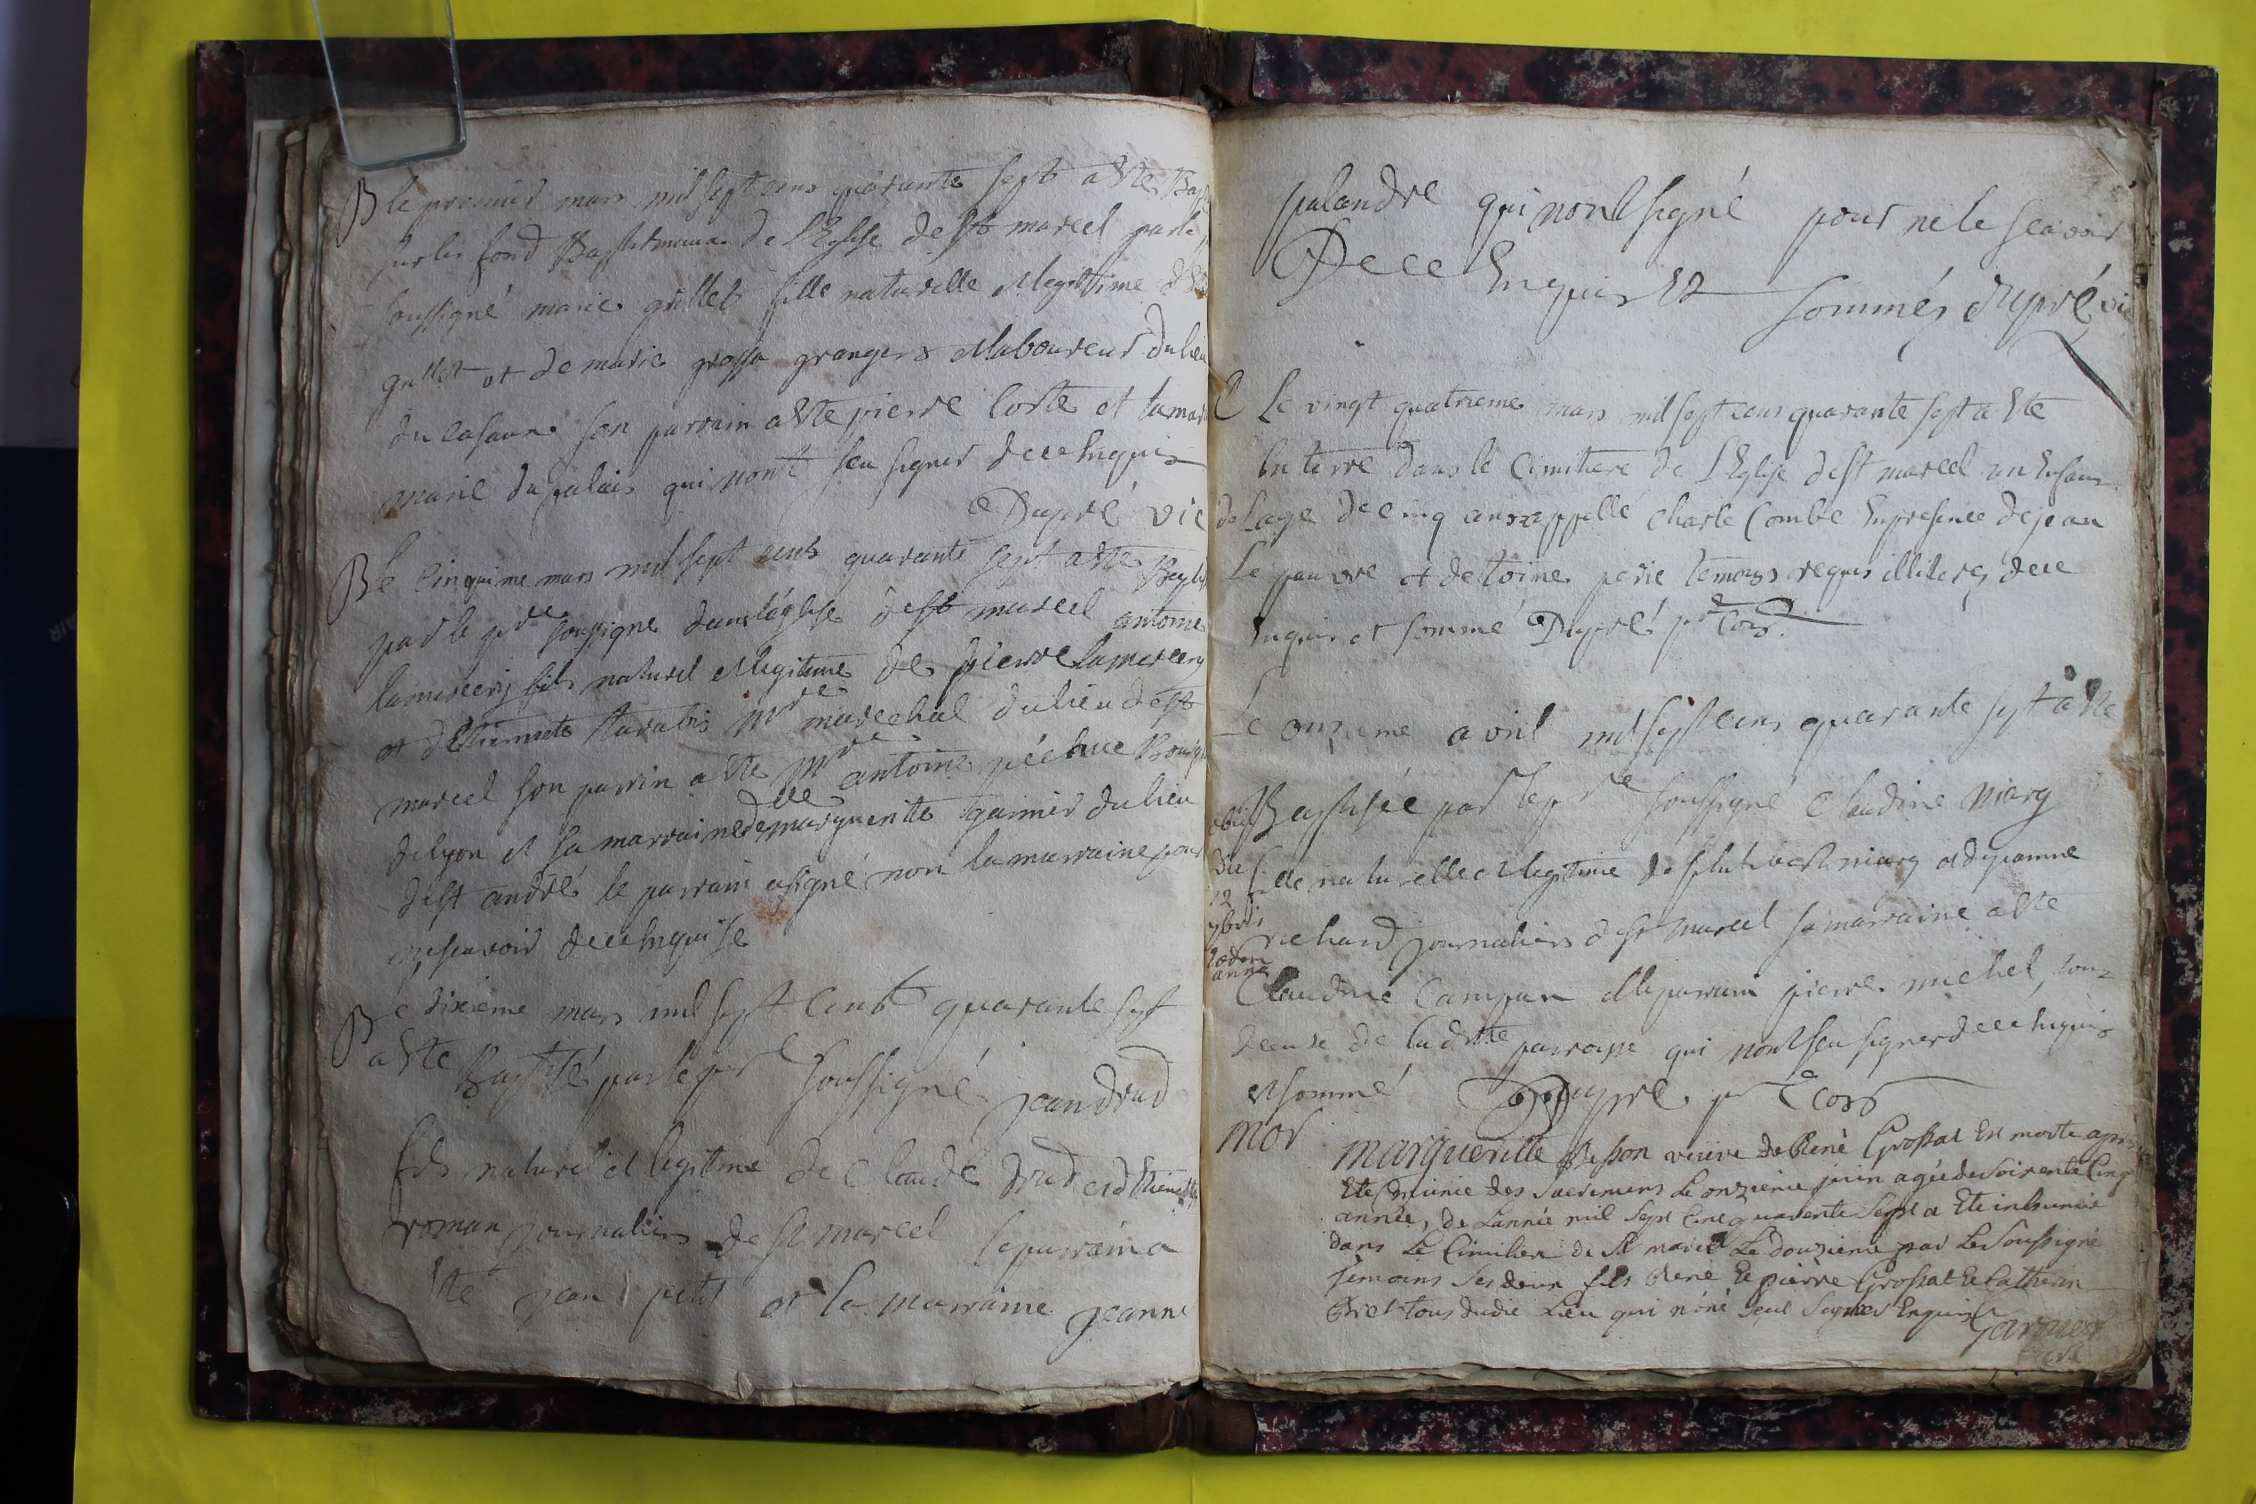 B le premier mars mil sept cens quarante sept a Ete Bap
sur les fond Baptismaux de l'Eglise de st marcel par le
soussigné marie guillet fille naturelle et legitime
guillet et de marie grossa grangers et laboureur du lieu
du casaux son parrain a Ete pierre Coste et la mar
marie du palais qui n'ont seu signer de ce enquis
Dupré vic
B le cinquime mars mil sept cents quarante sept a Ete Bap
par le ptre soussigné dans l'église de st marcel antoine
lamercery fils naturel et legitime de pierre lamercery
et d'Etiennete mre marechal du lieu de st
marcel son parrin a Ete mre antoine Bourg
de lyon et sa marraine dlle marguerite garnier du lieu
de st andré le parrain a signé non la marraine pour
ne scavoir de ce enquise
B Le dixieme mars mil sept Cents quarante sept
a Ete Baptisé par le ptre soussigné jean drud
fils naturel et legitime de Claude drud et d'Etiennette
roman journaliers de st marcel le parrain a
Ete jean petit et la marraine jeanne
palandre qui n'ont signé pour ne le scavoir
De ce Enquis Et sommés dupré vic
Le vingt quatrieme mars mil sept cens quarante sept a Ete
Enterre dans le Cimitiere de l'Eglise de st marcel un Enfant
de l'age de cinq ans appellé Charle Combe En presence de jean
Le pauvre et de toine perie temoins requis illiteres de ce
Enquis et sommé Dupré ptre Cors
Le onzieme avril mil sept cens quarante sept a Ete
Baptisée par le ptre soussigné Claudine viarg
fille naturelle et legitime de viarg et de jeanne
obiit
die
12
9bris
eodem
anno
richard journaliers de st marcel sa marraine a Ete
Claudine Campan et le parrain pierre michel, tous
deux de la ditte parroisse qui n'ont seu signer de ce Enquis
et sommé Dupré ptre Cors
mor
Margueritte Besson veuve de René Grossat Est morte après
Ete munie des Sacremens Le onzieme juin agée de soixente Cinq
année, de L'année mil Sept Cent quarente Sept a Ete inhumée
dans Le Cimitiere de St marcel Le douzieme par Le Soussigné
Temoins Ses deux fils René Et pierre Grossat Et Catherin
tous dudit Lieu qui n'ont Seul Signer Enquis
Garnier
curé